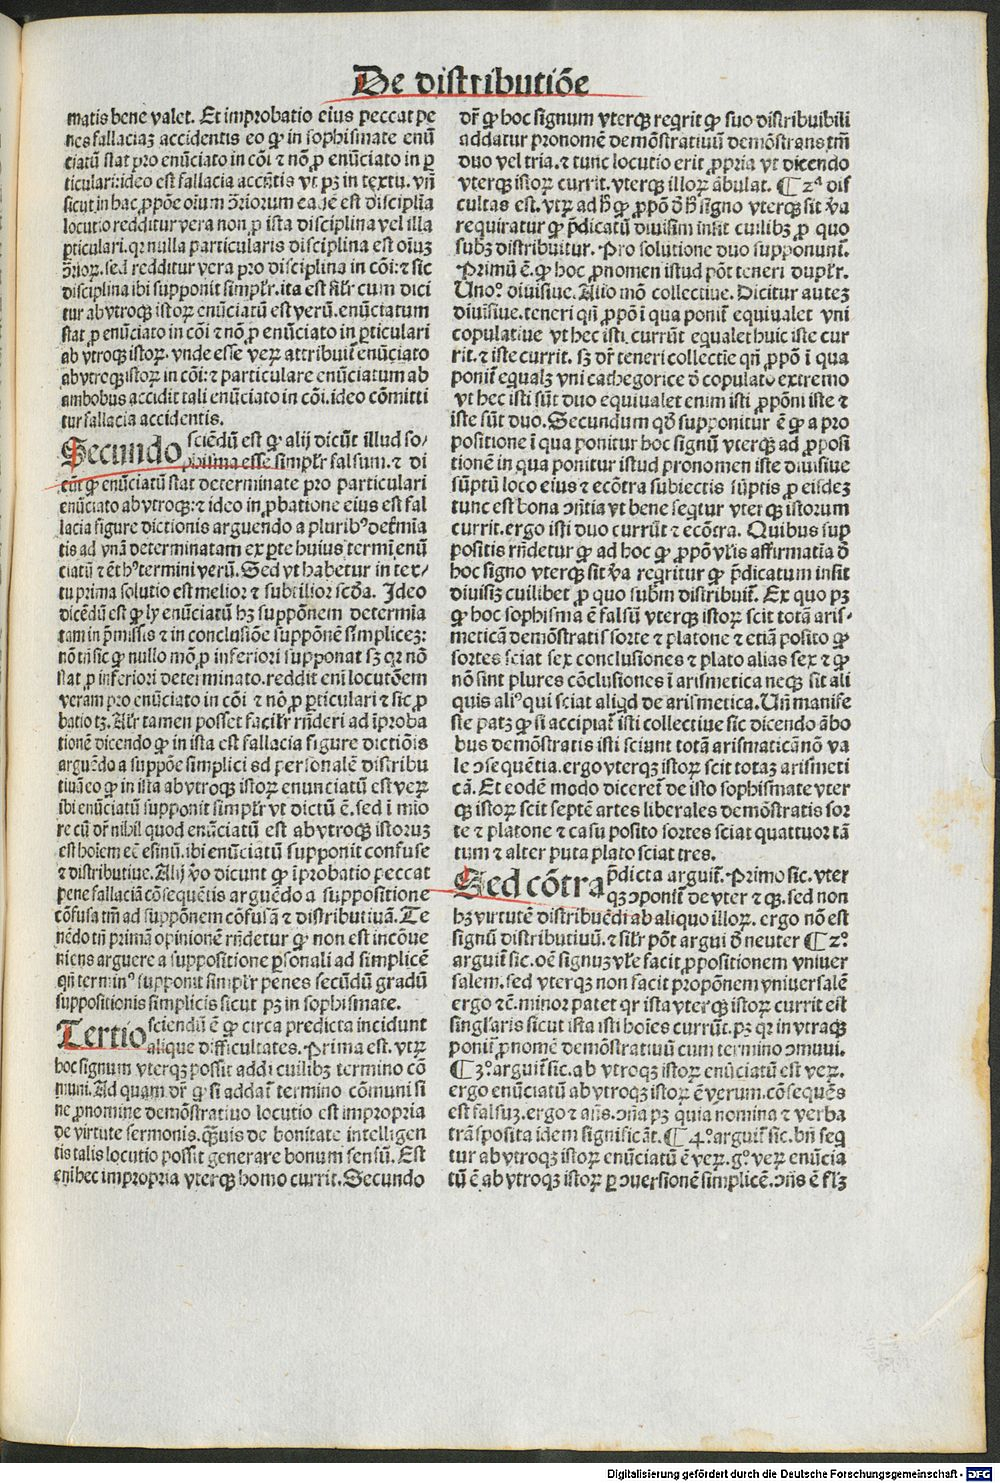 De distributiõe
matis bene valet. Et improbatio eius peccat pe
nes fallaciaȝ accidentis eo ꝙ in sophismate enũ
ciatũ stat pro enũciato in cõi ⁊ nõ ꝓ enũciato in ꝑ
ticulari: ideo est fallacia accñtis vt pȝ in textu. vñ
sicut in hac ꝓpõe oium ↄ̃riorum eadẽ est disciplĩa
locutio redditur vera non ꝓ ista disciplina vel illa
ꝑticulari. qꝛ nulla particularis disciplina est oiuȝ
ↄ̃rioꝝ. sed redditur vera pro disciplina in cõi: ⁊ sic
disciplina ibi supponit simplr̃. ita est silr̃ cum dici
tur ab vtroqꝫ istoꝝ enũciatũ est verũ. enũciatum
stat ꝓ enũciato in cõi ⁊ nõ ꝓ enũciato in ꝑticulari
ab vtroqꝫ istoꝝ. vnde esse veꝝ attribuit̃ enũciato
ab vtroqꝫ istoꝝ in cõi: ⁊ particulare enũciatum ab
ambobus accidit tali enũciato in cõi. ideo cõmitti
tur fallacia accidentis.
Secundo sciendũ est ꝙ alij dicũt illud so/
phisma esse simplr̃ falsum. ⁊ di
cũt ꝙ enũciatũ stat determinate pro particulari
enũciato ab vtroqꝫ: ⁊ ideo in ꝓbatione eius est fal
lacia figure dictionis arguendo a pluribꝰ deͭmia
tis ad vnã determinatam ex ꝑte huius termĩ enũ
ciatũ ⁊ ẽt hꝰ termini verũ. Sed vt habetur in tex/
tu prima solutio est melior ⁊ subtilior scđa. Ideo
dicẽdũ est ꝙ ly enũciatũ hȝ supponem determĩa
tam in p̃missis ⁊ in conclusiõe supponẽ simpliceȝ:
nõ tñ sic ꝙ nullo mõ ꝓ inferiori supponat sȝ qꝛ nõ
stat ꝓ inferiori determinato. reddit eni locutõem
veram pro enũciato in cõi ⁊ nõ ꝓ ꝑticulari ⁊ sic ꝓ
batio tȝ. Alr̃ tamen posset facilr̃ rñderi ad ĩproba
tionẽ dicendo ꝙ in ista est fallacia figure dictiõis
arguẽdo a suppõe simplici ad personalẽ distribu
tiuã eo ꝙ in ista ab vtroqꝫ istoꝝ enunciatũ est veꝝ
ibi enũciatũ supponit simplr̃ vt dictũ ẽ. sed ĩ mio
re cũ dr̃ nihil quod enũciatũ est ab vtroqꝫ istoruȝ
est hoiem eẽ esinũ. ibi enũciatũ supponit confuse
⁊ distributiue. Alij v̊o dicunt ꝙ ĩprobatio peccat
pene fallaciã cõsequẽtis arguẽdo a suppositione
cõfusa tm̃ ad supponẽm cõfusã ⁊ distributiuã. Te
nẽdo tñ primã opinionẽ rñdetur ꝙ non est incõue
niens arguere a suppositione ꝑsonali ad simplicẽ
qñ terminꝰ supponit simplr̃ penes secũdũ gradũ
suppositionis simplicis sicut pȝ in sophismate.
Tertio sciendũ ẽ ꝙ circa predicta incidunt
alique difficultates. Prima est. vtꝝ
hoc signum vterqꝫ possit addi cuilibȝ termino cõ
muni. Ad quam dr̃ ꝙ si addat̃ termino cõmuni si
ne ꝓnomine demõstratiuo locutio est impropria
de virtute sermonis. ꝙ̃uis de bonitate intelligen
tis talis locutio possit generare bonum sensũ. Est
eni hec impropria vterqꝫ homo currit. Secundo
dr̃ ꝙ hoc signum vterqꝫ reqrit ꝙ suo distribuibili
addatur pronomẽ demõstratiuũ demõstrans tm̃
duo vel tria. ⁊ tunc locutio erit ꝓpria vt dicendo
vterqꝫ istoꝝ currit. vterqꝫ illoꝝ ãbulat. ¶ 2ª dif
cultas est. vtꝝ ad h̃ ꝙ ꝓpõ đ h̃ signo vterqꝫ sit v̊a
requiratur ꝙ p̃dicatũ diuisim insit cuilibȝ ꝓ quo
subȝ distribuitur. Pro solutione duo supponunt̃.
Primũ ẽ. ꝙ hoc ꝓnomen istud põt teneri duplr̃.
Uno.º diuisiue. Alio mõ collectiue. Dicitur auteȝ
diuisiue. teneri qñ ꝓpõ ĩ qua ponit̃ equiualet vni
copulatiue vt hec isti currũt equalet huic iste cur
rit. ⁊ iste currit. sȝ dr̃ teneri collectie qñ ꝓpõ ĩ qua
ponit̃ equalȝ vni cathegorice đ copulato extremo
vt hec isti sũt duo equiualet enim isti ꝓpõni iste ⁊
iste sũt duo. Secundum qđ supponitur ẽ ꝙ a pro
positione ĩ qua ponitur hoc signũ vterqꝫ ad ꝓposi
tionẽ in qua ponitur istud pronomen iste diuisiue
sũptũ loco eius ⁊ ecõtra subiectis sũptis ꝓ eisdeȝ
tunc est bona ↄñtia vt bene seqtur vterqꝫ istorum
currit. ergo isti duo currũt ⁊ ecõtra. Quibus sup
positis rñdetur ꝙ ad hoc ꝙ ꝓpõ vl̃is affirmatĩa đ
hoc signo vterqꝫ sit v̊a reqritur ꝙ p̃dicatum insit
diuisiȝ cuilibet ꝓ quo subm̃ distribuit̃. Ex quo pȝ
ꝙ hoc sophisma ẽ falsũ vterqꝫ istoꝝ scit totã aris/
meticã demõstratis sorte ⁊ platone ⁊ etiã posito ꝙ
sortes sciat sex conclusiones ⁊ plato alias sex ⁊ ꝙ
nõ sint plures cõclusiones ĩ arismetica neqꝫ sit ali
quis aliꝰ qui sciat aliqd de arismetica. Uñ manife
ste patȝ ꝙ si accipiat̃ isti collectiue sic dicendo ãbo
bus demõstratis isti sciunt totã arismaticã nõ va
le ↄsequẽtia. ergo vterqȝ istoꝝ scit totaȝ arismeti
cã. Et eodẽ modo diceret̃ de isto sophismate vter
qꝫ istoꝝ scit septẽ artes liberales demõstratis sor
te ⁊ platone ⁊ casu posito sortes sciat quattuor tã
tum ⁊ alter puta plato sciat tres.
Sed cõtra p̃dicta arguit̃. Primo sic. vter
qȝ ↄponit̃ de vter ⁊ qꝫ. sed non
hȝ virtutẽ distribuẽdi ab aliquo illoꝝ. ergo nõ est
signũ distributiuũ. ⁊ silr̃ põt argui đ neuter ¶ 2.º
arguit̃ sic. oẽ signuȝ vl̃e facit ꝓpositionem vniuer
salem. sed vterqȝ non facit propõnem vniuersalẽ
ergo ⁊c̃. minor patet qr ista vterqꝫ istoꝝ currit est
singl̃aris sicut ista isti hoĩes currũt. pȝ qꝛ in vtraqꝫ
ponit̃ ꝓnomẽ demõstratiuũ cum termino ↄmuni.
¶ 3.º arguit̃ sic. ab vtroqꝫ istoꝝ enũciatũ est veꝝ.
ergo enũciatũ ab vtroqꝫ istoꝝ ẽ verum. cõsequẽs
est falsuȝ. ergo ⁊ añs. ↄña pȝ quia nomina ⁊ verba
trãsposita idem significãt. ¶ 4.º arguit̃ sic. bñ seq
tur ab vtroqȝ istoꝝ enũciatũ ẽ veꝝ. gͦ. veꝝ enũcia
tũ ẽ ab vtroqꝫ istoꝝ ꝑ ↄuersionẽ simplicẽ. ↄñs ẽ fl̃ȝ
Digitalisierung gefördert durch die Deutsche Forschungsgemeinschaft - DFG